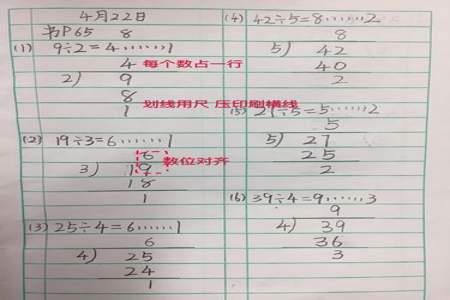 4月22日
书P65 8
(1) 9÷2=4……1
4 每个数占一行
2) 9
8
划线用尺 压印刷横线
1
(2) 19÷3=6……1
6
数位对齐
3) 19
18
1
(3) 25÷4=6……1
6
4) 25
24
1
(4) 42÷5=8……2
8
5) 42
40
2
(5) 27÷5=5……2
5
5) 27
25
2
(6) 39÷4=9……3
9
4) 39
36
3